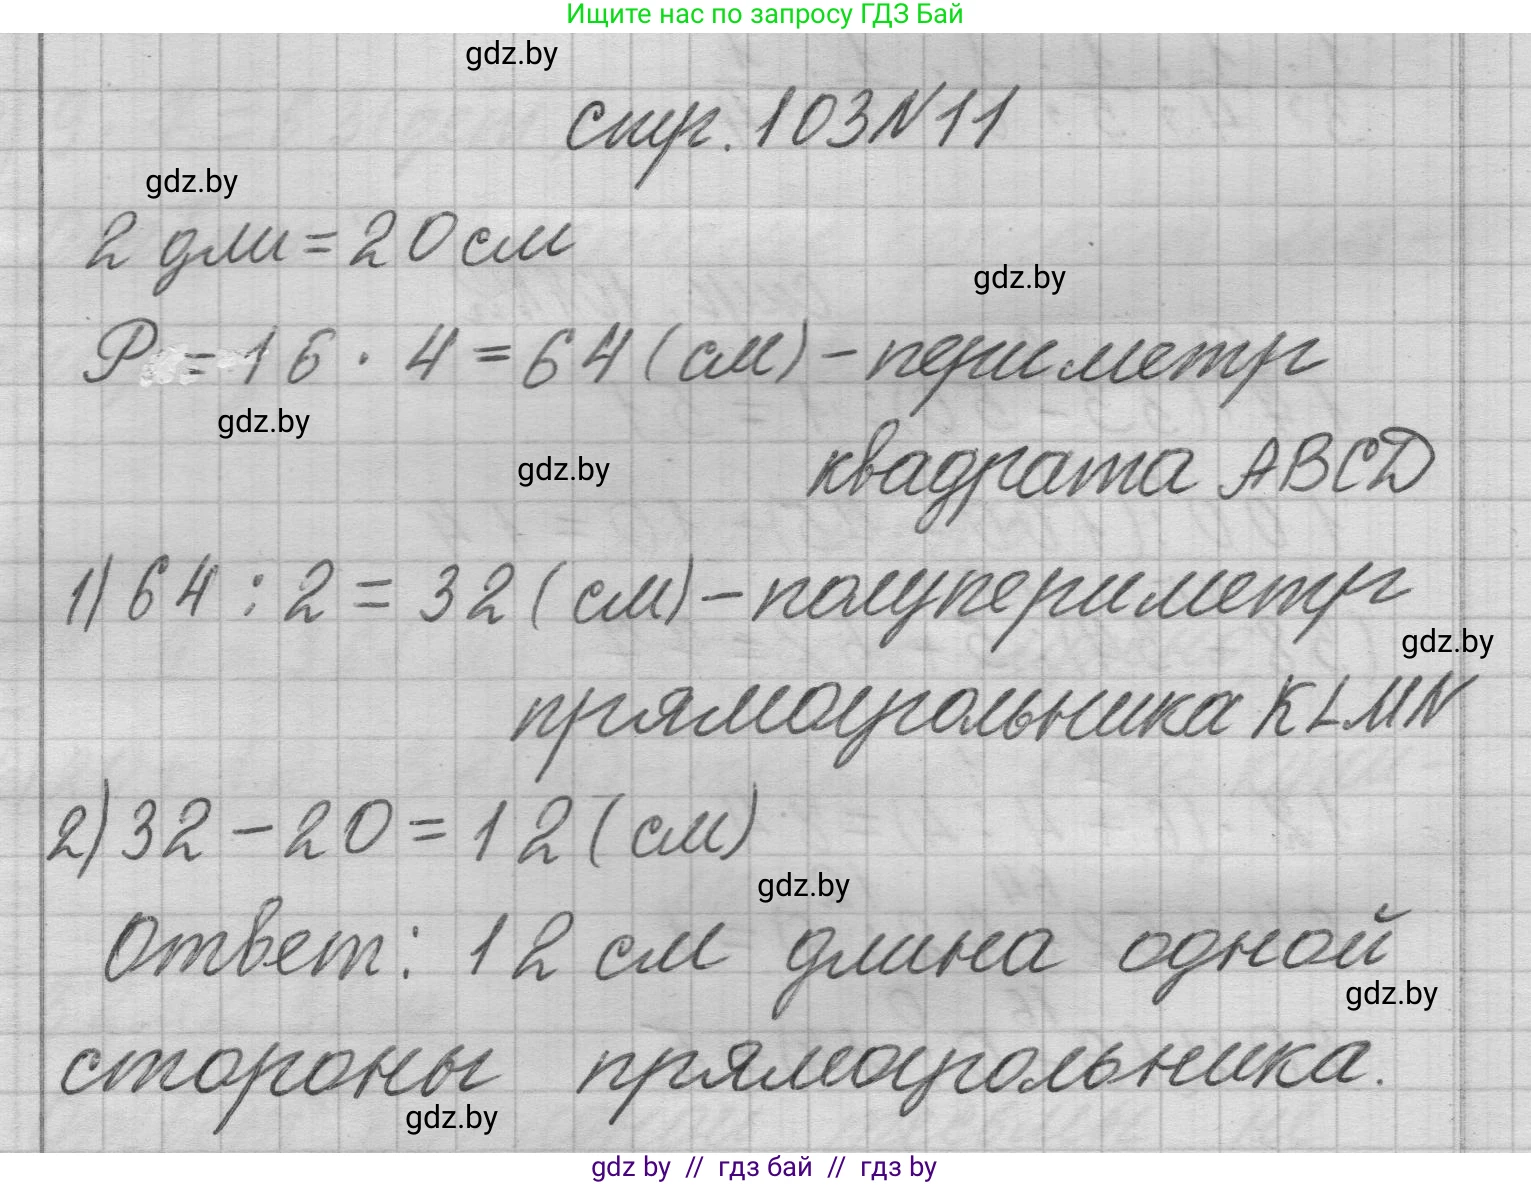 Ищите нас по запросу ГДЗ Бай
gdz.by
стр. 103 N 11
gdz.by
2 дм = 20 см
gdz.by
P = 16 · 4 = 64 (см) – периметр
gdz.by
квадрата ABCD
gdz.by
1) 64 : 2 = 32 (см) – полупериметр
gdz.by
прямоугольника KLMN
2) 32 – 20 = 12 (см)
gdz.by
Ответ: 12 см длина одной
gdz.by
стороны прямоугольника.
gdz.by
gdz by // гдз бай // гдз by